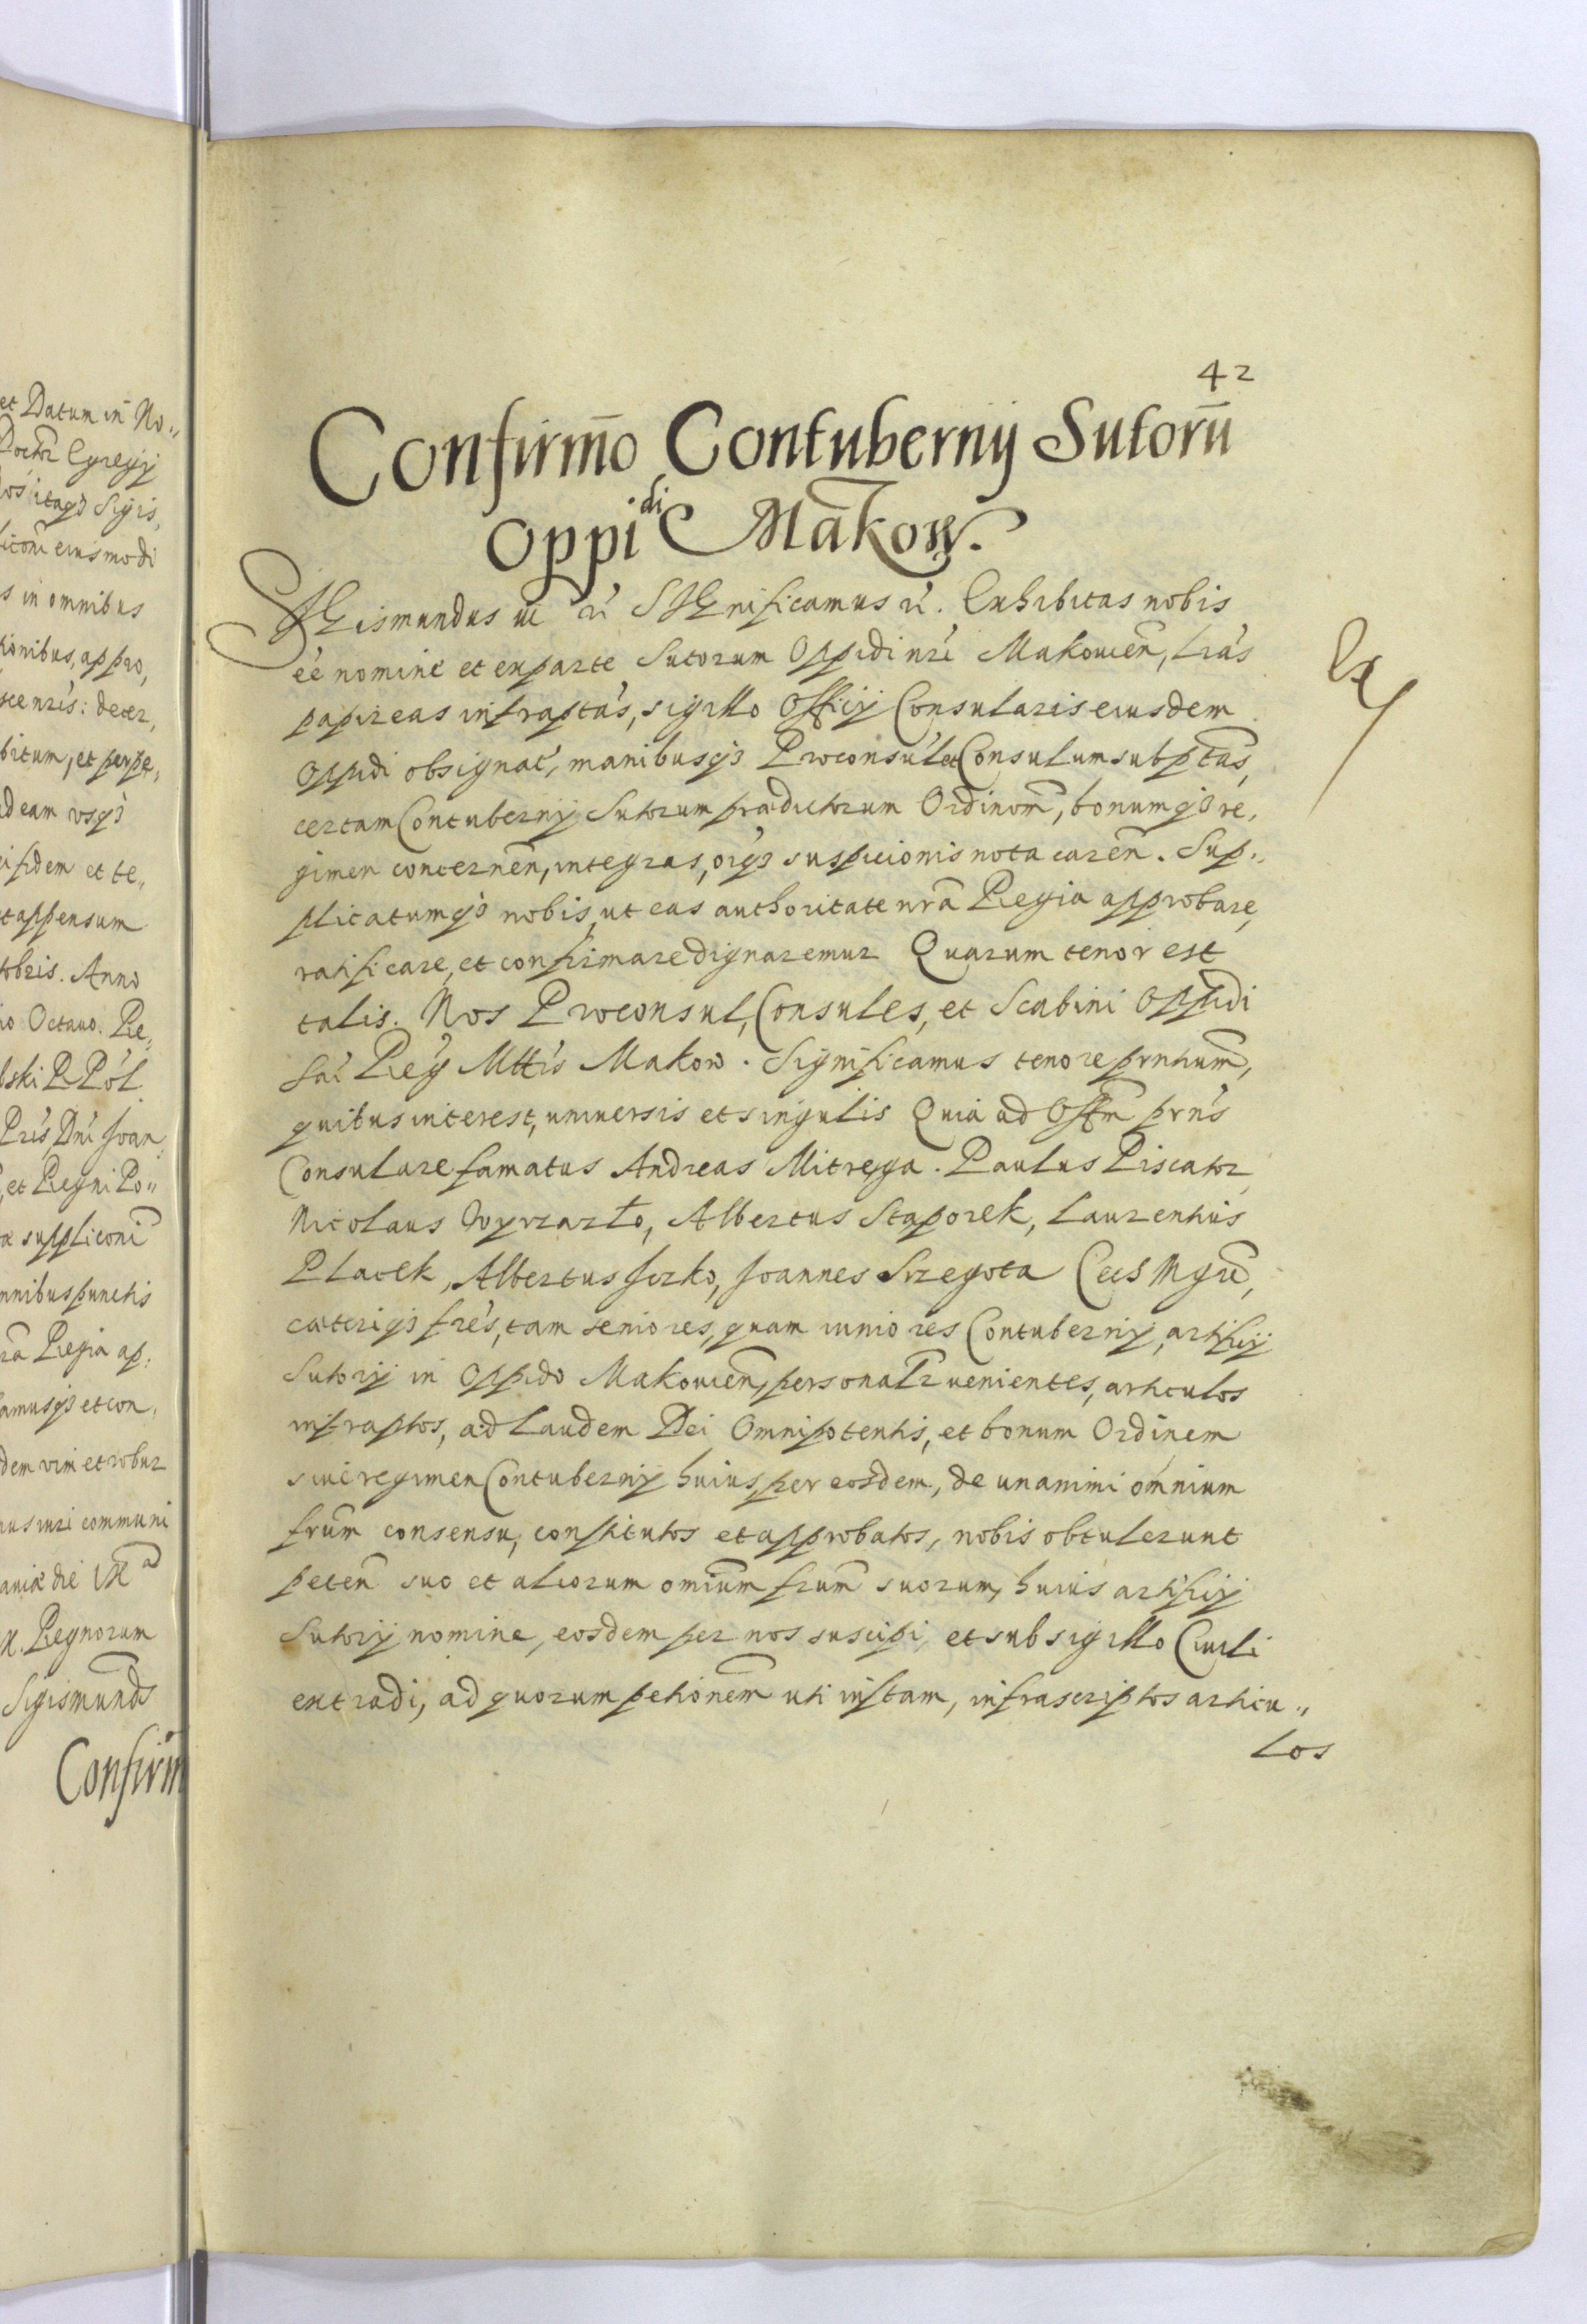 et Datum in No„
Doctor Egregij
Nos itaq3 Sigis,
liconi eiusmodi
s in omnibus
tionibus, appro,
scenris: decer,
bitum, et perpe,
adeam usq3
ei fidem et te„
t appensum
tobris. Anno
io Octavo. Re,
lski R Pol.
Pris Dni Joan
, et Regni Po„
a suppliconi
mnibus punctis
ra Regia ap:
amusq3 et con,
dem vim et robur
nus iuri communi
aviae die IX a
X. Regnorum
Sigismunds
Confirm
42
Confirmo Contubernij Sutorū
Oppidi Makow.
SIGismundus III rí SIGnificamus rí. Exhibitas nobis
eé nomine et ex parte Sutorum Oppidi nrí Makovien, Lrás
papireas infraptás, sigillo Officij Consularis eiusdem
Oppidi obsignat, manibusq3 Proconsúl et Consulum subptas,
certam Contubernij Sutorum pradictorum Ordinom, bonumq3 re,
gimen concernen, integras, oiq3 suspicionis nota caren. Sup„
plicatumq3 nobis, ut eas authoritate nra Regia approbare,
ratificare, et confirmare dignaremur Quarum tenor est
talis. Nos Proconsul, Consules, et Scabini Oppidi
Sai Reg Mttis Makow. Significamus tenore prntium,
quibus interest, universis et singulis Quia ad Offm prns
Consulare famatus Andreas Mitrega. Paulus Piscator,
Nicolaus Wyrzarło, Albertus Staporek, Laurentius
Placek, Albertus Jurko, Joannes Srzegota Cechmgri,
caeteriq3 frés, tam seniores, quam iuniores Contubernij, artificij
Sutorij in Oppido Makovien, personalr venientes, articulos
infraptos, ad Laudem Dei Omnipotentis, et bonum Ordinem
sive regimen Contubernij huius, per eosdem, de unanimi omnium
frum consensu, constitutos et approbatos, nobis obtulerunt
peten suo et aliorum omium frum suorum, huius artificij
Sutorij nomine, eosdem per nos suscipi, et sub sigillo Civili
extradi, ad quorum petionem uti instam, infrascriptos articu„
los